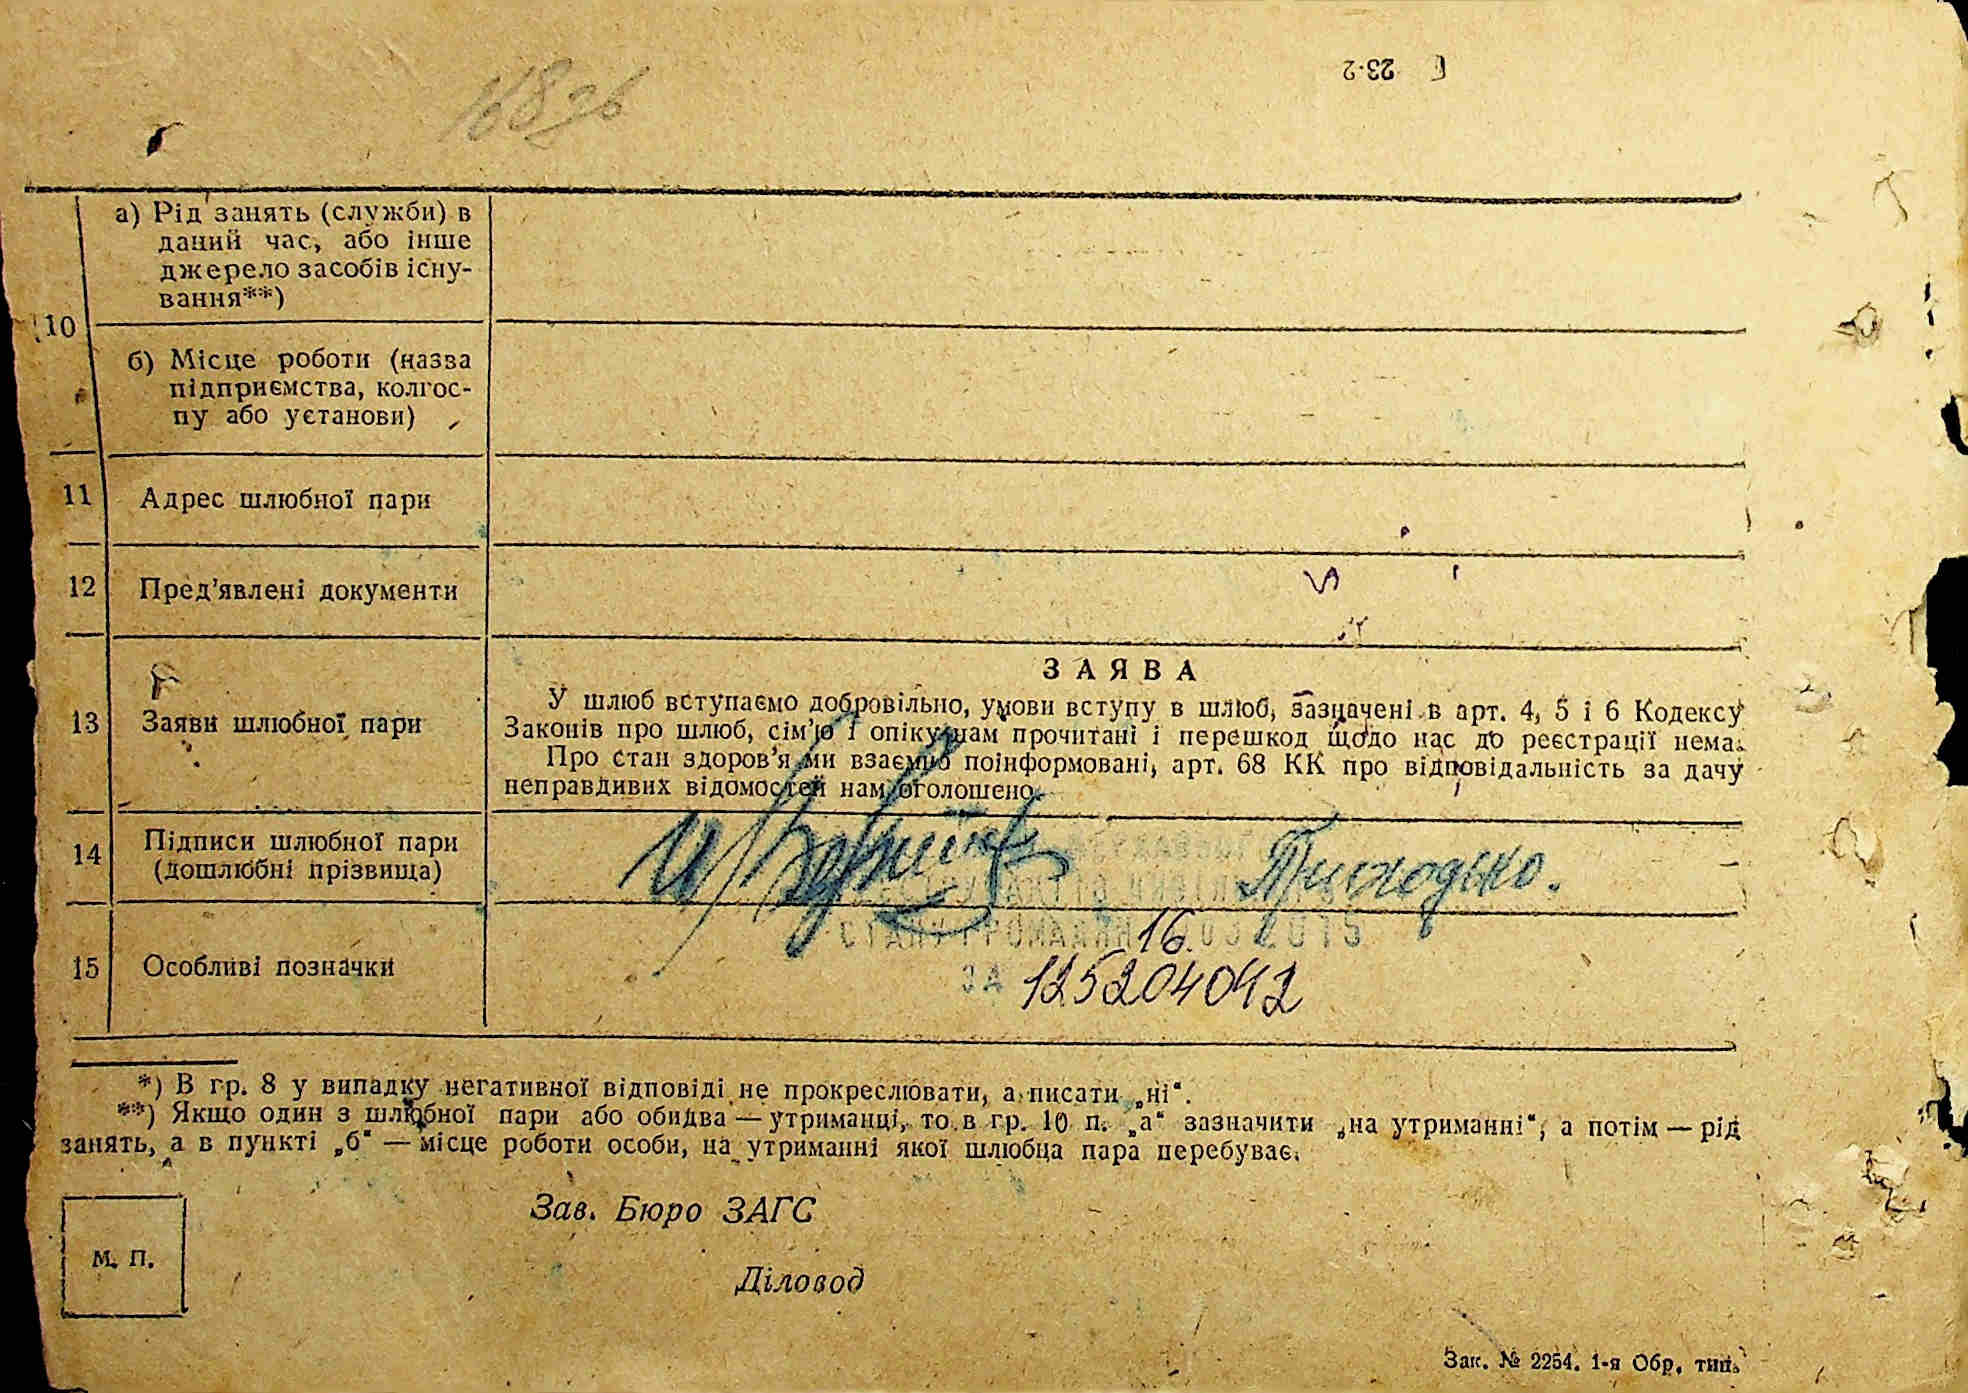 23-2
а) Рід занять (служби) в
даний час, або інше
джерело засобів існу-
вання**)
10
б) Місце роботи (назва
підприємства, колгос-
пу або установи)
11 Адрес шлюбної пари
12 Пред’явлені документи
ЗАЯВА
13 Заяви шлюбної пари
У шлюб вступаємо добровільно, умови вступу в шлюб, зазначені в арт. 4, 5 і 6 Кодексу
Законів про шлюб, сім’ю і опіку нам прочитані і перешкод щодо нас до реєстрації нема.
Про стан здоров’я ми взаємно поінформовані, арт. 68 КК про відповідальність за дачу
неправдивих відомостей нам оголошено.
14 Підписи шлюбної пари
(дошлюбні прізвища)
Приходько.
СТАНУ ГРОМАДЯН 2015
16.
15 Особливі позначки
ЗА 125204042
*) В гр. 8 у випадку негативної відповіді не прокреслювати, а писати „ні“.
**) Якщо один з шлюбної пари або обидва — утриманці, то в гр. 10 п. „а“ зазначити „на утриманні“, а потім — рід
занять, а в пункті „б“ — місце роботи особи, на утриманні якої шлюбна пара перебуває.
Зав. Бюро ЗАГС
М. П.
Діловод
Зак. № 2254. 1-я Обр. тип.